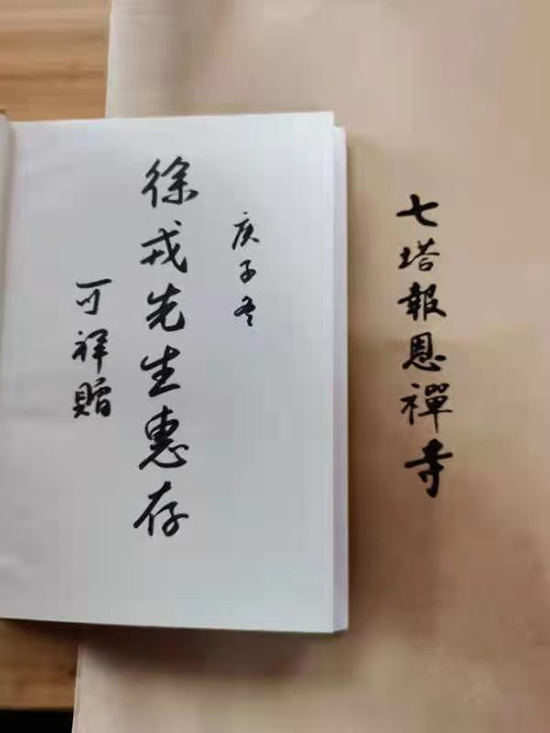 七塔報恩禪寺
庚子冬
徐戎先生惠存
可祥贈